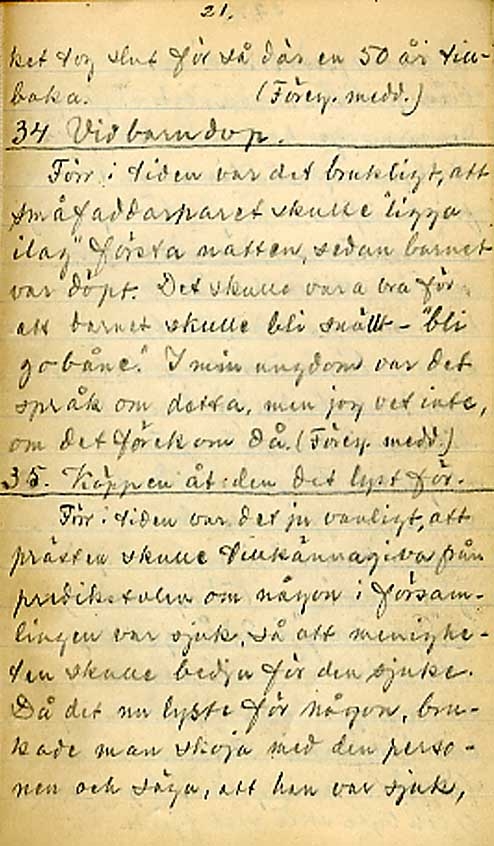 21.
ket tog slut för så där en 50 år till-
baka. (Föreg. medd.)
34 Vid barndop.
Förr i tiden var det brukligt, att
småfaddarparet skulle "ligga
ilag" första natten, sedan barnet
var döpt. Det skulle vara bra för
att barnet skulle bli snällt - "bli
go-båne". I min ungdom var det
språk om detta, men jag vet inte,
om det förekom då. (Föreg. medd.)
35. Käppen åt den det lyst för.
Förr i tiden var det ju vanligt, att
prästen skulle tillkännagiva från
predikstolen om någon i försam-
lingen var sjuk, så att menighe-
ten skulle bedja för den sjuke.
Då det nu lyste för någon, bru-
kade man skoja med den perso-
nen och säga, att han var sjuk,